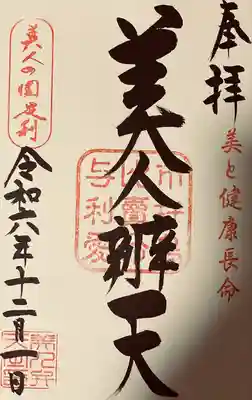 奉拝
美と健康長命
美人辨天
美人の国足利
令和六年十二月一日